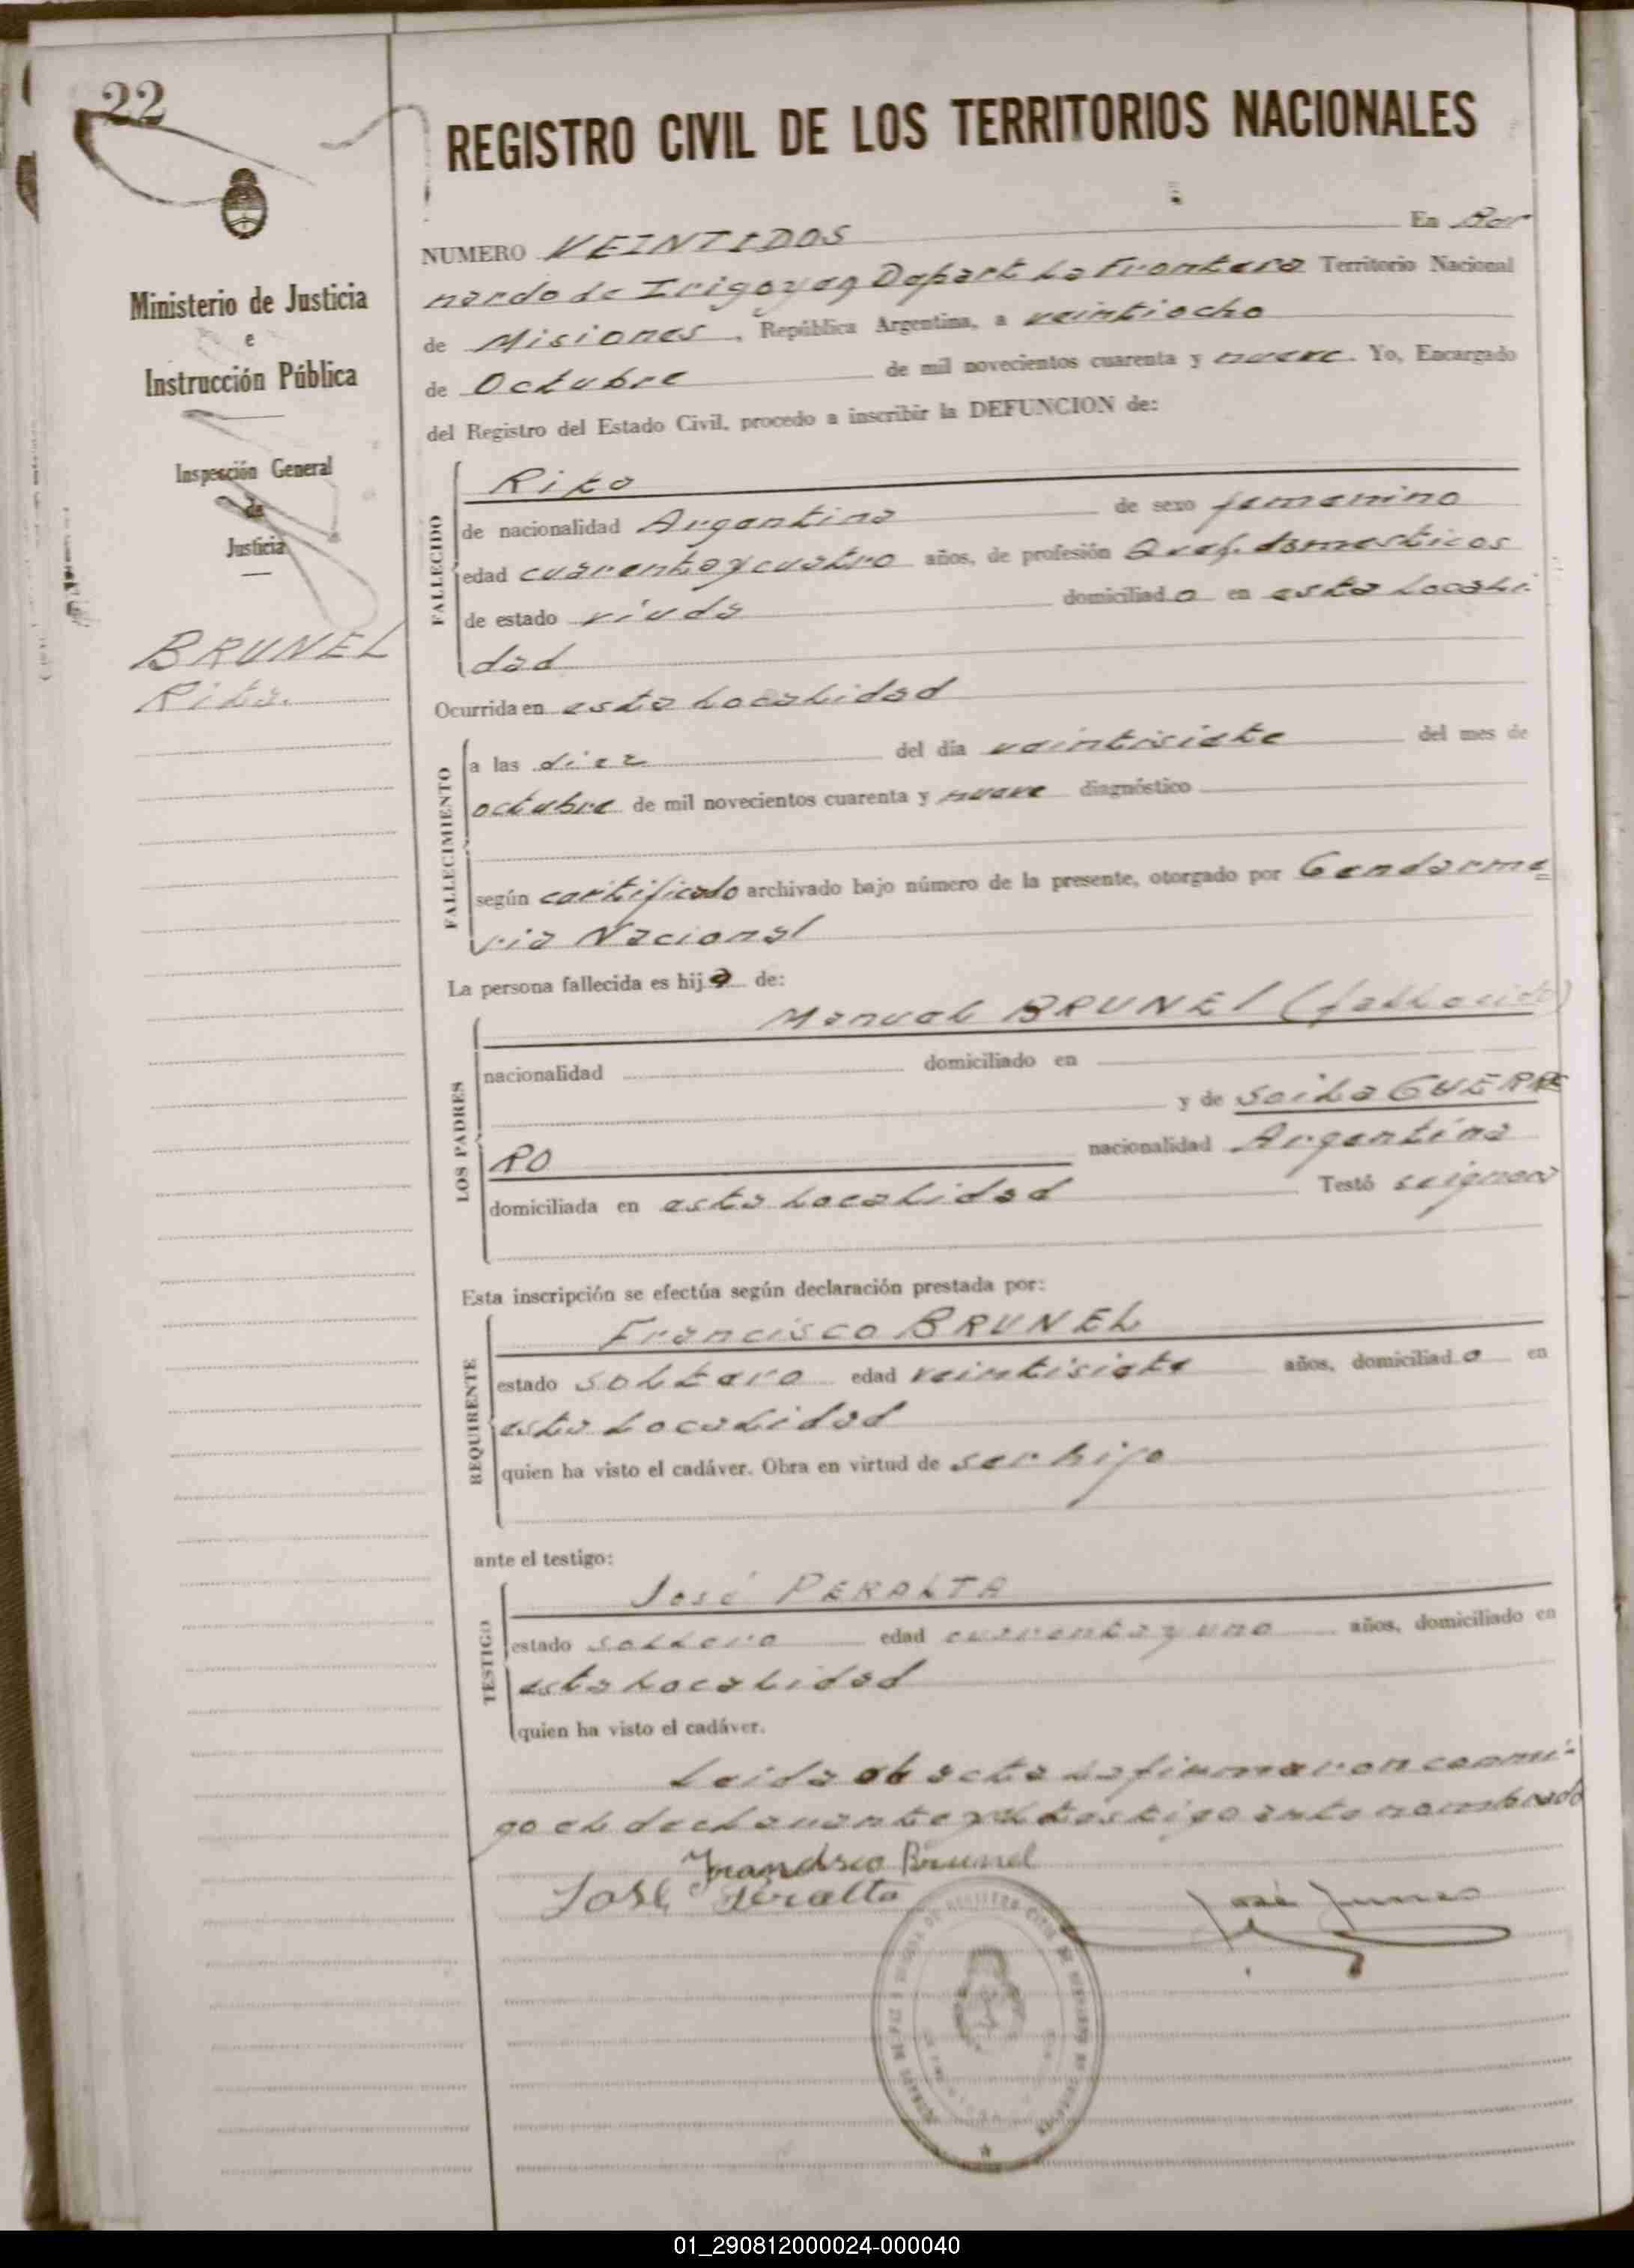 22
REGISTRO CIVIL DE LOS TERRITORIOS NACIONALES
Ministerio de Justicia
e
Instrucción Pública
Inspección General
de
Justicia
BRUNEL
Rita.
NUMERO VEINTIDOS En Ber
nardo de Irigoyen Depart La Frontera Territorio Nacional
de Misiones, República Argentina, a veintiocho
de Octubre de mil novecientos cuarenta y nueve. Yo, Encargado
del Registro del Estado Civil, procedo a inscribir la DEFUNCION de:
FALLECIDO
Rita
de nacionalidad Argentina de sexo femenino
edad cuarenta y cuatro años, de profesión Quef. domesticos
de estado viuda domiciliada en esta Locali
dad
Ocurrida en esta Localidad
FALLECIMIENTO
a las diez del día veintisiete del mes de
octubre de mil novecientos cuarenta y nueve diagnóstico
según certificado archivado bajo número de la presente, otorgado por Gendarme=
ria Nacional
La persona fallecida es hija de:
LOS PADRES
Manuel BRUNEL (fallecido)
nacionalidad domiciliado en
y de GUERRE
RO nacionalidad Argentina
domiciliada en esta Localidad Testó se ignora
Esta inscripción se efectúa según declaración prestada por:
REQUIRENTE
Francisco BRUNEL
estado soltero edad veintisiete años, domiciliado en
esta Localidad
quien ha visto el cadáver. Obra en virtud de ser hijo
ante el testigo:
TESTIGO
José PERALTA
estado soltero edad cuarenta y uno años, domiciliado en
esta Localidad
quien ha visto el cadáver.
Leida el acta la firmaron conmi-
go el declarante y el testigo ante nombrado
Francisco Brunel
José Peralta
José
01_290812000024-000040